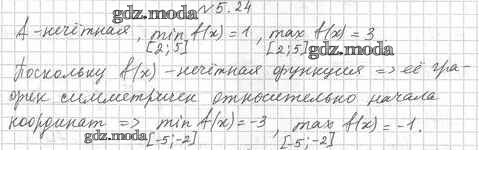 gdz.moda №5.24
f-нечётная, min f(x) = 1, max f(x) = 3
[2; 5] [2; 5] gdz.moda
Поскольку f(x) - нечётная функция => её гра-
фик симметричен относительно начала
координат => min f(x) = -3, max f(x) = -1.
gdz.moda [-5; -2] [-5; -2]